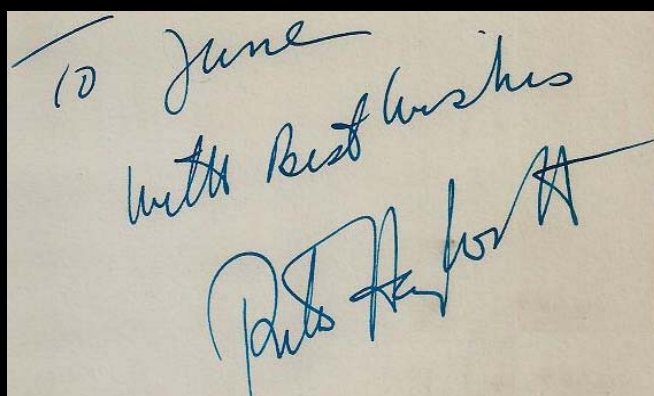 To June
with Best Wishes
Rita Hayworth